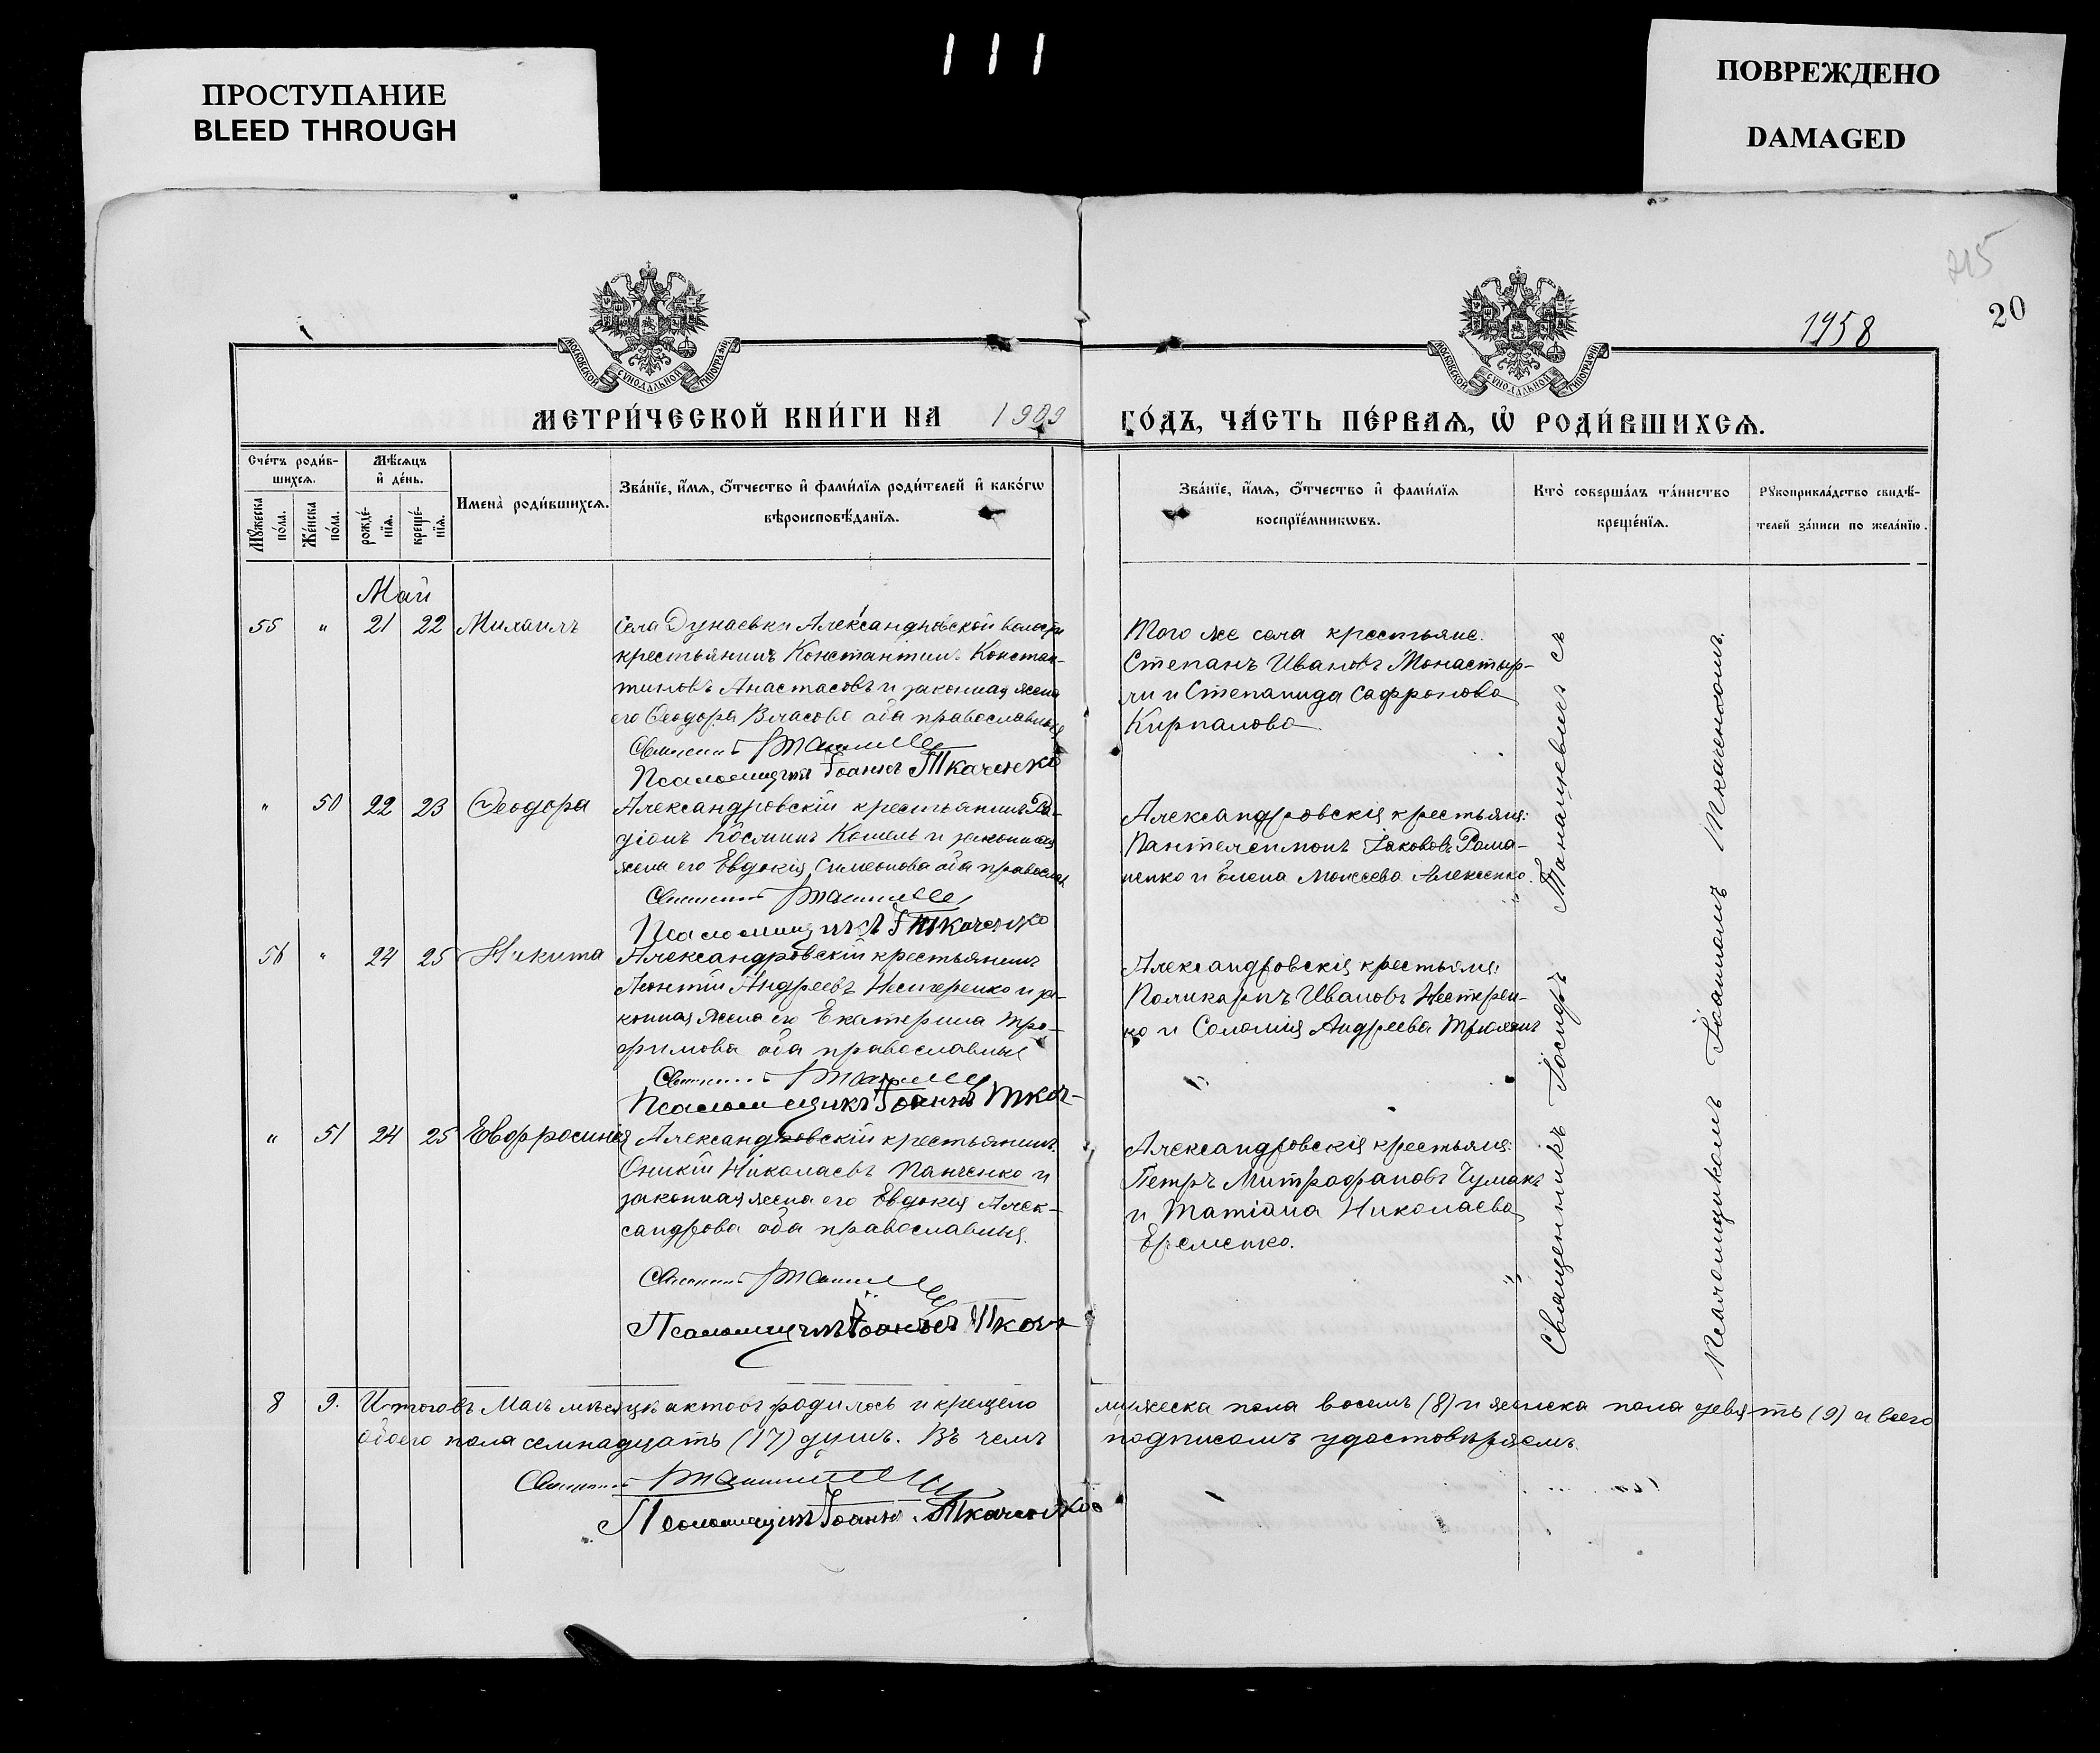 ПРОСТУПАНИЕ
BLEED THROUGH
111
ПОВРЕЖДЕНО
DAMAGED
215
20
1958
МОСКОВСКОЙ СУНОДАЛЬНОЙ ТИПОГРАФІИ
МОСКОВСКОЙ СУНОДАЛЬНОЙ ТИПОГРАФІИ
МЕТРИ́ЧЕСКОЙ КНИ́ГИ НА 1909 ГО́ДЪ, ЧА́СТЬ ПЕ́РВАЯ, Ѡ РОДИ́ВШИХСЯ.
Сче́тъ роди́в-
шихся.
Мꙋжеска по́ла.
Же́нска по́ла.
Мѣ́сяцъ
и҆ де́нь.
рожде́-
нїя.
креще́-
нїя.
Имена̀ роди́вшихся.
Зва́нїе, и҆́мя, ѻ҆́тчество и҆ фами́лїя роди́телей и҆ како́гѡ
вѣроисповѣ́данїя.
Зва́нїе, и҆́мя, ѻ҆́тчество и҆ фами́лїя
воспрїе́мникѡвъ.
Кто̀ соверша́лъ та́инство
креще́нїя.
Рꙋкоприкла́дство свидѣ́-
телей за́писи по жела́нїю.
Май
55 " 21 22 Михаилъ
Села Дунаевки Александровской волости
крестьянинъ Константинъ Констан-
тиновъ Анастасовъ и законная жена
его Ѳеодора Власова оба православные
Священникъ
Псаломщикъ Іоаннъ Ткаченко
Того же села крестьяне:
Степанъ Ивановъ Монастыр-
ли и Степанида Сафронова
Кирпалова
" 50 22 23 Ѳеодора
Александровскій крестьянинъ Ро-
діонъ Косминъ Кошель и законная
жена его Евдокія Симеонова оба православ
Священникъ
Псаломщикъ І Ткаченко
Александровскія крестьяне:
Пантелеимонъ Іакововъ Рома-
ненко и Елена Моисеева Алексенко.
56 " 24 25 Никита
Александровскій крестьянинъ
Леонтій Андреевъ Нестеренко и за-
конная жена его Екатерина Тро-
фимова оба православные
Священникъ
Псаломщикъ Іоаннъ Ткач-
Александровскія крестьяне:
Поликарпъ Ивановъ Нестерен-
ко и Соломія Андреева
" 51 24 25 Евфросинія
Александровскій крестьянинъ
Оникій Николаевъ Панченко и
законная жена его Евдокія Алек-
сандрова оба православные.
Священникъ
Псаломщикъ Іоаннъ Ткач
Александровскія крестьяне:
Петръ Митрофановъ Чумакъ
и Татіана Николаева
Еременко.
Священникъ Іосифъ Танашевичъ съ
Псаломщикомъ Іоанномъ Ткаченкомъ.
8 9. Итого въ Маѣ мѣсяцѣ актовъ родилось и крещено мужеска пола восемь (8) и женска пола девять (9) а всего
обоего пола семнадцать (17) душъ. Въ чемъ подписомъ удостовѣряемъ.
Священникъ
Псаломщикъ Іоаннъ Ткаченко